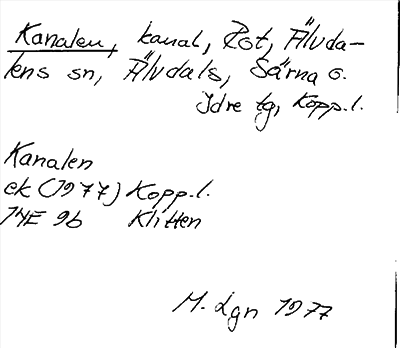 Kanalen, kanal, Rot, Älvda-
lens sn, Älvdals, Särna o.
Idre tg, Kopp.l.
Kanalen
ek (1977) Kopp.l.
14E 9b Klitten
M. Lgn 1977